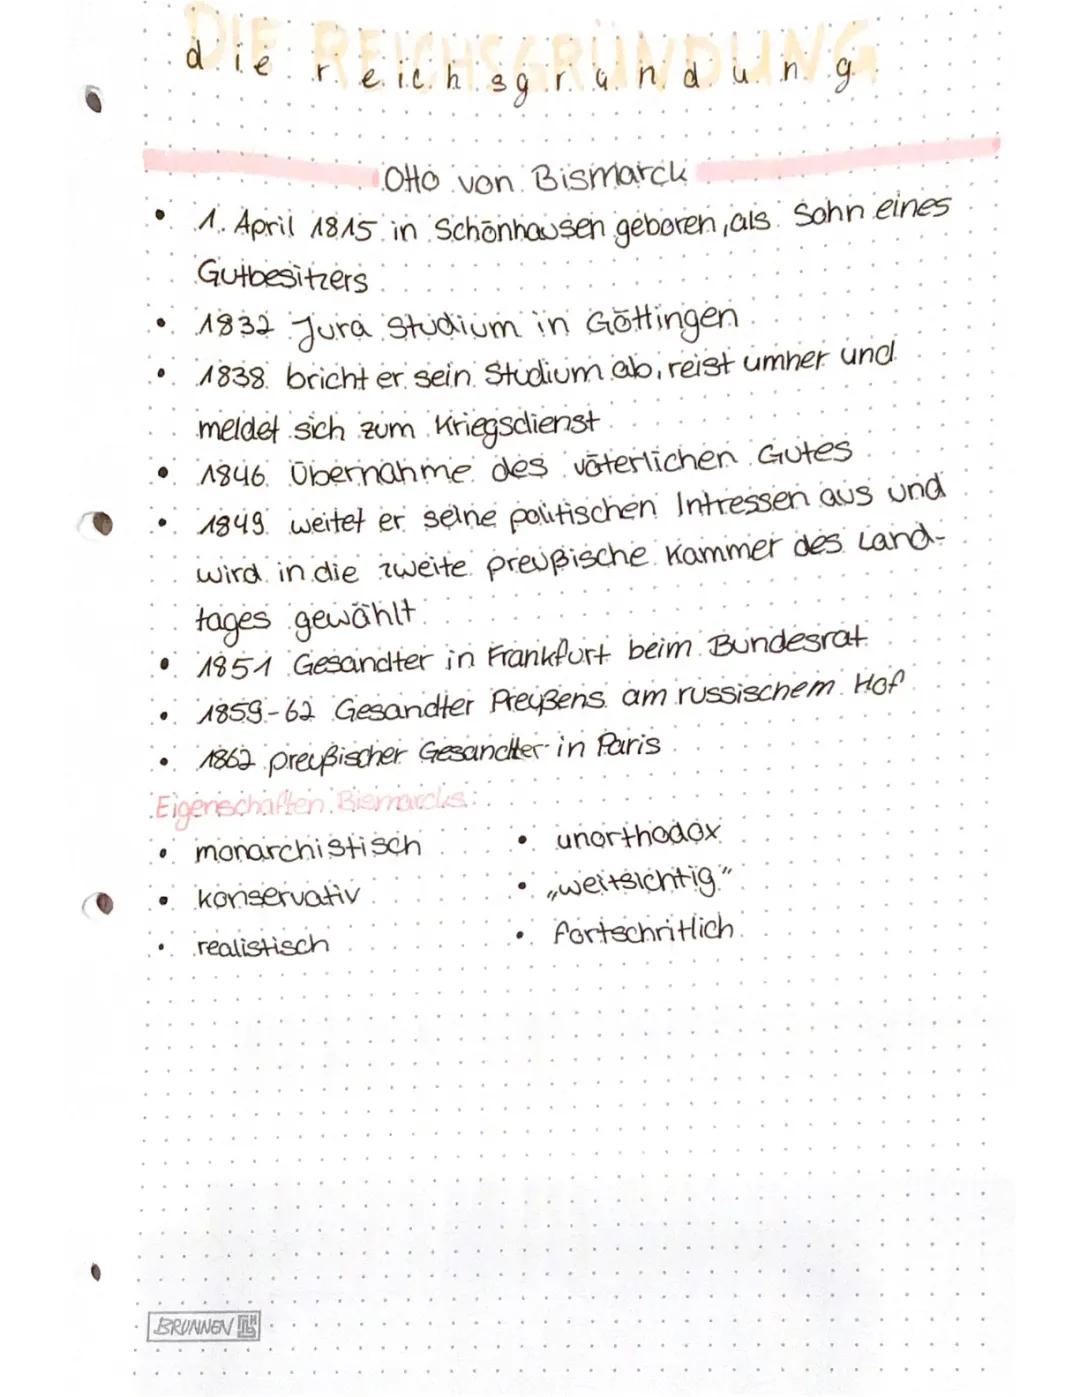 DIE REICHSGRÜNDUNG
die reichsgründung
Otto von Bismarck
• 1. April 1815 in Schönhausen geboren, als Sohn eines
Gutbesitzers
• 1832 Jura Studium in Göttingen
• 1838 bricht er sein Studium ab, reist umher und
meldet sich zum Kriegsdienst
• 1846 Übernahme des väterlichen Gutes
• 1849 weitet er seine politischen Intressen aus und
wird in die zweite preußische Kammer des Land-
tages gewählt
• 1851 Gesandter in Frankfurt beim Bundesrat
• 1859-62 Gesandter Preußens am russischem Hof
• 1862 preußischer Gesandter in Paris
Eigenschaften Bismarcks:
• monarchistisch
• konservativ
• realistisch
• unorthodox
• „weitsichtig"
• fortschritlich
BRUNNEN